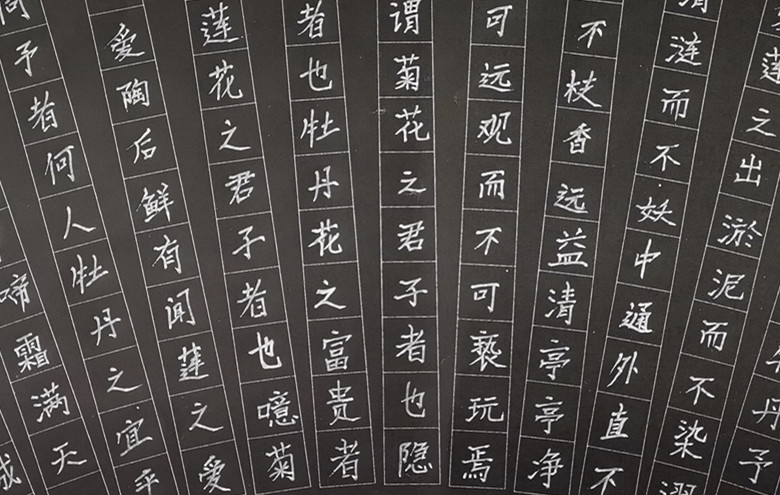 丹予
莲之出淤泥而不染濯
清涟而不妖中通外直不
不枝香远益清亭亭净
可远观而不可亵玩焉
谓菊花之君子者也隐
者也牡丹花之富贵者
莲花之君子者也噫菊
爱陶后鲜有闻莲之爱
同予者何人牡丹之宜乎
啼霜满天